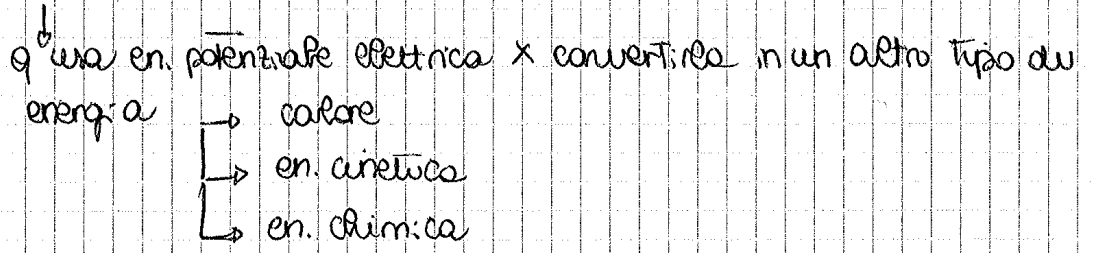 q usa en. potenziale elettrica x convertirla in un altro tipo di
energia → calore
→ en. cinetica
→ en. chimica